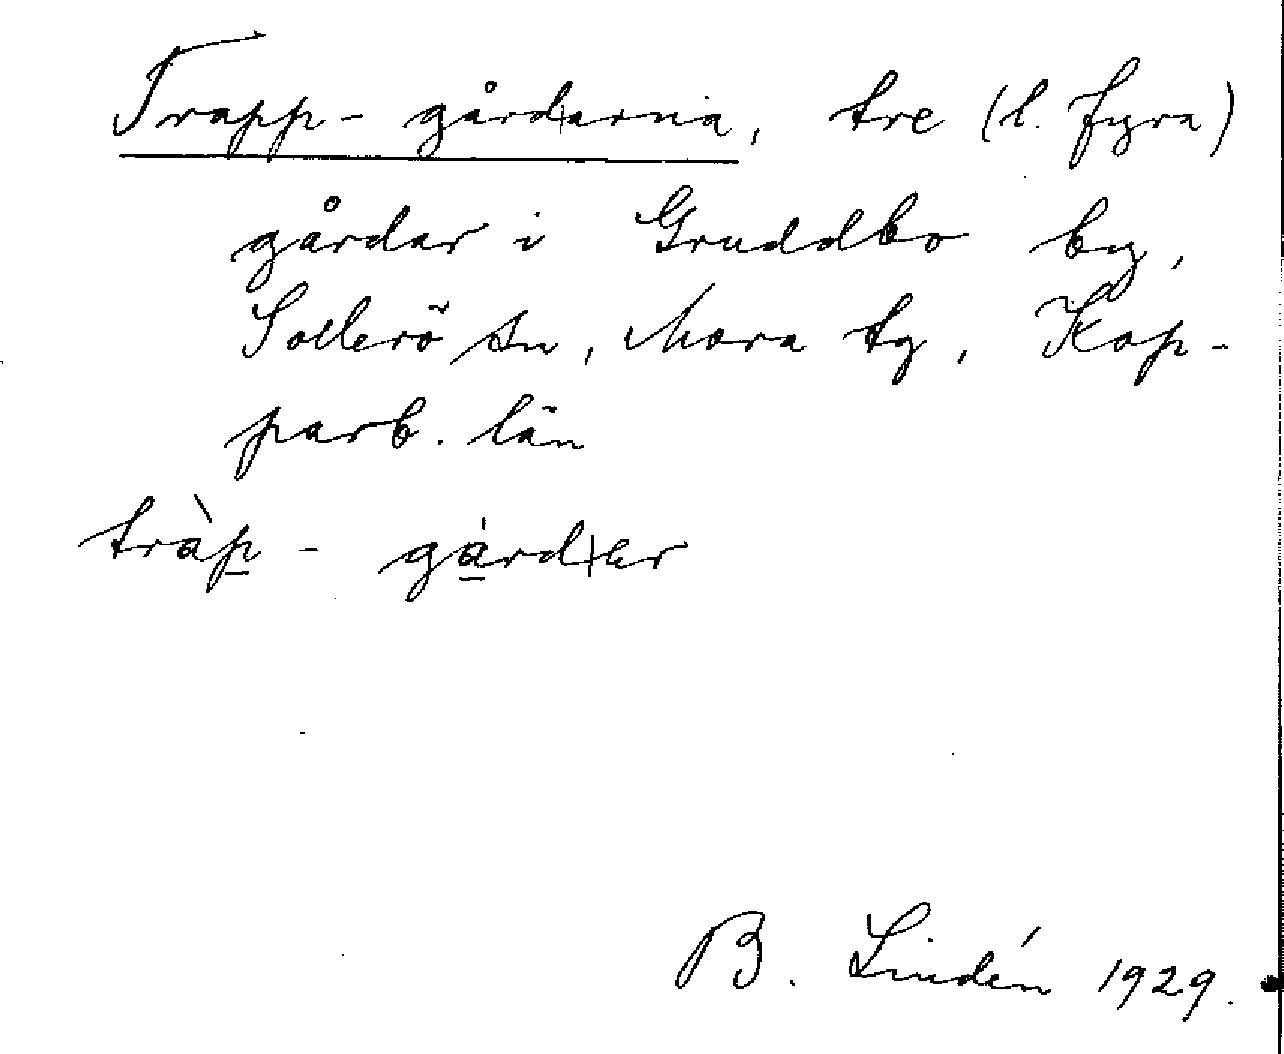 Trapp-gård|arna, tre (l. fyra)
gårdar i Gruddbo by,
Sollerö sn, Mora tg, Kop-
parb. län
tràp̲ - ga̲̍rd|er
B. Lindén 1929.